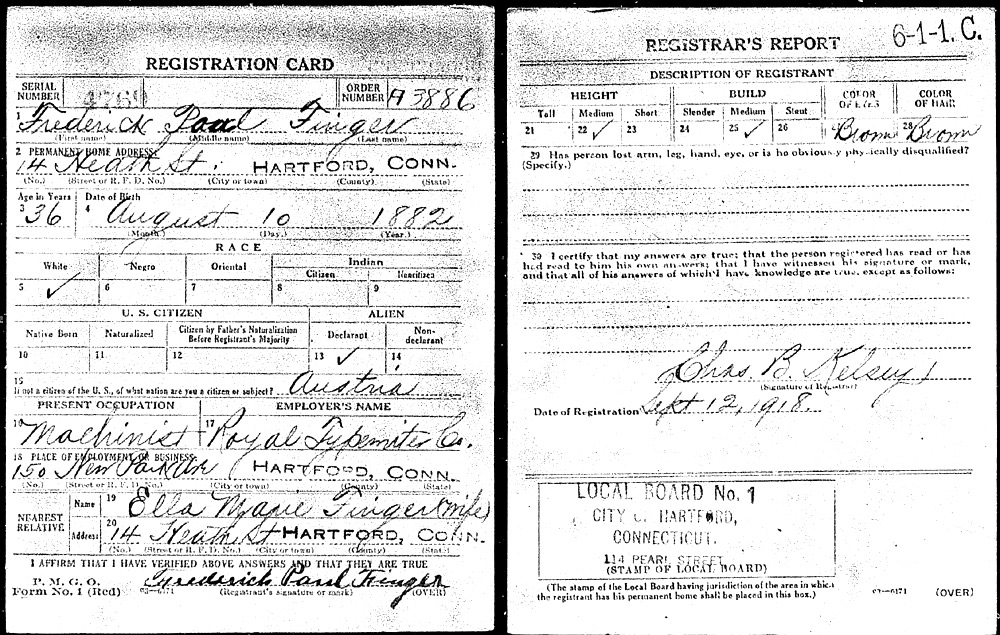 REGISTRATION CARD
SERIAL NUMBER 4769 ORDER NUMBER A3886
1 Frederick Paul Finger
(First name) (Middle name) (Last name)
2 PERMANENT HOME ADDRESS:
14 Heath St. HARTFORD, CONN.
(No.) (Street or R. F. D. No.) (City or town) (County) (State)
Age in Years Date of Birth
3 36 4 August 10 1882
(Month.) (Day.) (Year.)
RACE
White Negro Oriental Indian
Citizen Noncitizen
5 ✓ 6 7 8 9
U. S. CITIZEN ALIEN
Native Born Naturalized Citizen by Father's Naturalization Before Registrant's Majority Declarant Non-declarant
10 11 12 13 ✓ 14
15 If not a citizen of the U. S., of what nation are you a citizen or subject? Austria
PRESENT OCCUPATION EMPLOYER'S NAME
16 Machinist 17 Royal Typewriter Co.
18 PLACE OF EMPLOYMENT OR BUSINESS:
150 New Park Ave HARTFORD, CONN.
(No.) (Street or R. F. D. No.) (City or town) (County) (State)
NEAREST RELATIVE Name 19 Ella Marie Finger (wife)
Address 20 14 Heath St HARTFORD, CONN.
(No.) (Street or R. F. D. No.) (City or town) (County) (State)
I AFFIRM THAT I HAVE VERIFIED ABOVE ANSWERS AND THAT THEY ARE TRUE
P. M. G. O.
Form No. 1 (Red) 03—6171 Frederick Paul Finger
(Registrant's signature or mark) (OVER)
6-1-1. C.
REGISTRAR'S REPORT
DESCRIPTION OF REGISTRANT
HEIGHT BUILD COLOR OF EYES COLOR OF HAIR
Tall Medium Short Slender Medium Stout
21 22 ✓ 23 24 25 ✓ 26 Brown 28 Brown
29 Has person lost arm, leg, hand, eye, or is he obviously physically disqualified?
(Specify.)
30 I certify that my answers are true; that the person registered has read or has
had read to him his own answers; that I have witnessed his signature or mark,
and that all of his answers of which I have knowledge are true, except as follows:
Chas. B. Kelsey
(Signature of Registrar)
Date of Registration Sept 12, 1918.
LOCAL BOARD No. 1
CITY OF HARTFORD,
CONNECTICUT.
114 PEARL STREET
(STAMP OF LOCAL BOARD)
(The stamp of the Local Board having jurisdiction of the area in which
the registrant has his permanent home shall be placed in this box.)
03—6171 (OVER)